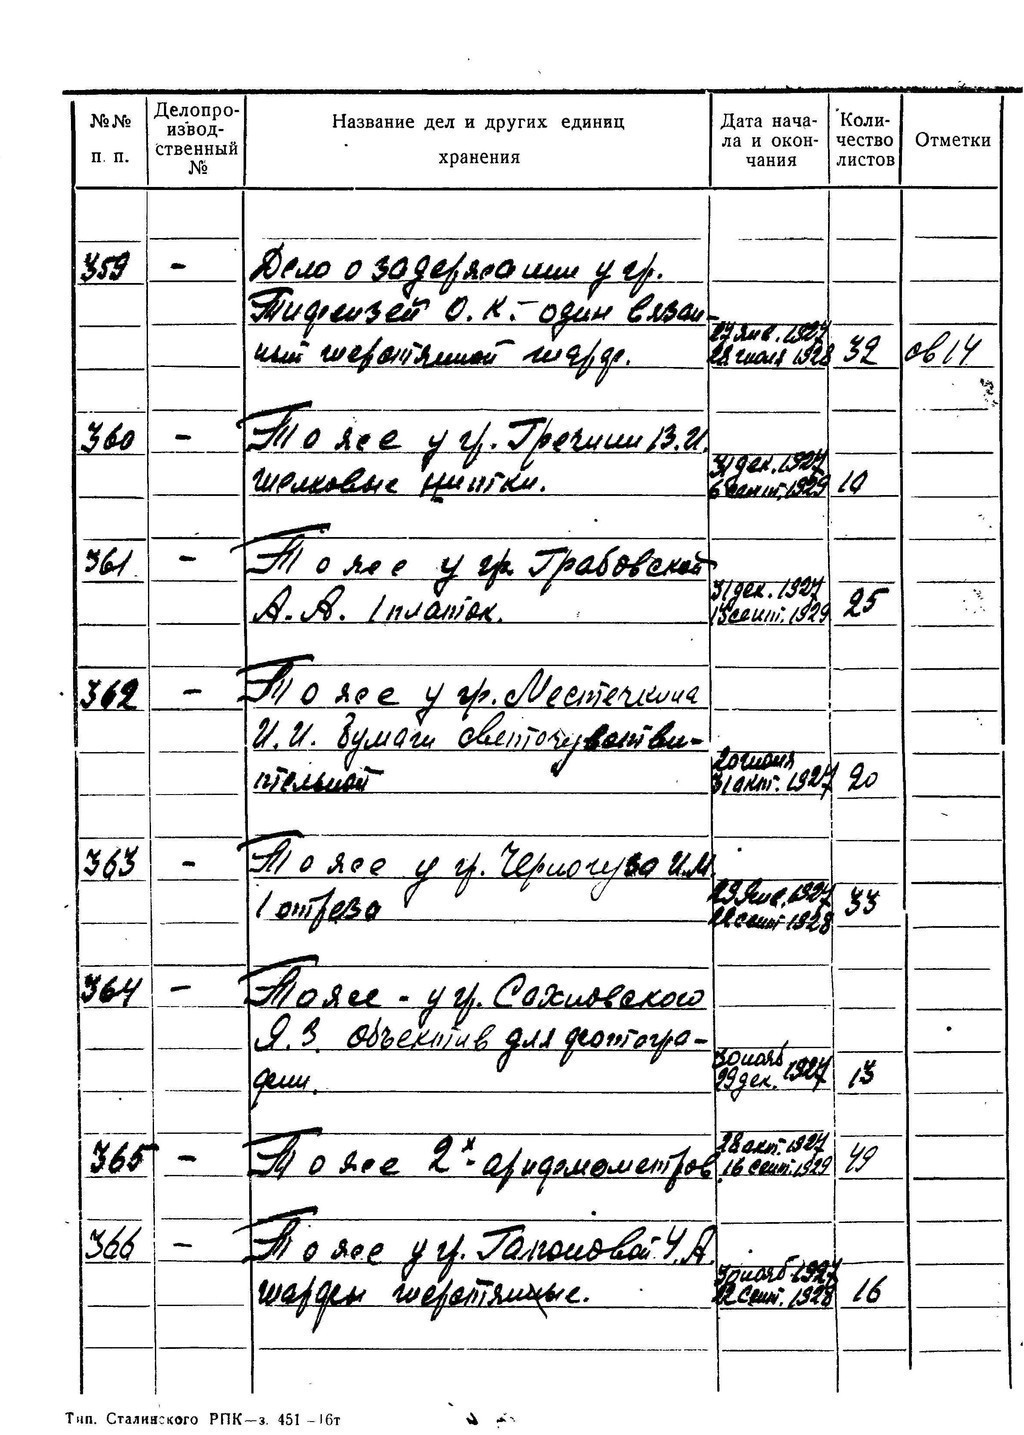 №№ п. п.
Делопро-
извод-
ственный
№
Название дел и других единиц
хранения
Дата нача-
ла и окон-
чания
Коли-
чество
листов
Отметки
359 - Дело о задержании у гр.
О. К. - один вязан-
ный шерстянной шарф. 28 июля 1928 32 14
360 - То же у гр. Гречиши В. И.
шелковые нитки. 31 дек. 1927
6 сент. 1929 10
361 - То же у гр. Грабовской
А. А. 1 платок. 31 дек. 1927
13 сент. 1929 25
362 - То же у гр. Местечкина
И. И. Бумаги светочувстви-
тельной 20 июня
31 окт. 1927 20
363 - То же у гр. Черногуза И. М.
1 отреза 29 янв. 1927
22 сент 1928 33
364 - То же - у гр. Сахновского
Я. З. Объектив для фотогра-
фии. 30 нояб
29 дек. 1927 13
365 - То же 2х - арифмометров 28 окт. 1927
16 сент. 1929 49
366 - То же у гр. А.
шарфы шерстянные. 30 нояб 1927
12 сент. 1928 16
Тип. Сталинского РПК—з. 451—16т